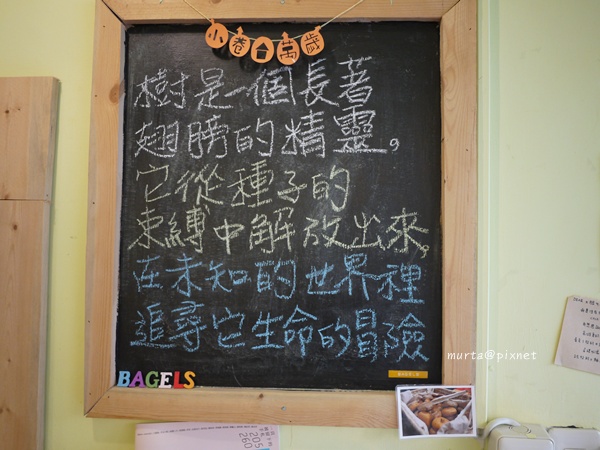 小卷口萬歲
樹是一個長著
翅膀的精靈。
它從種子的
束縛中解放出來,
在未知的世界裡
追尋它生命的冒險
murta@pixnet
BAGELS
205
260